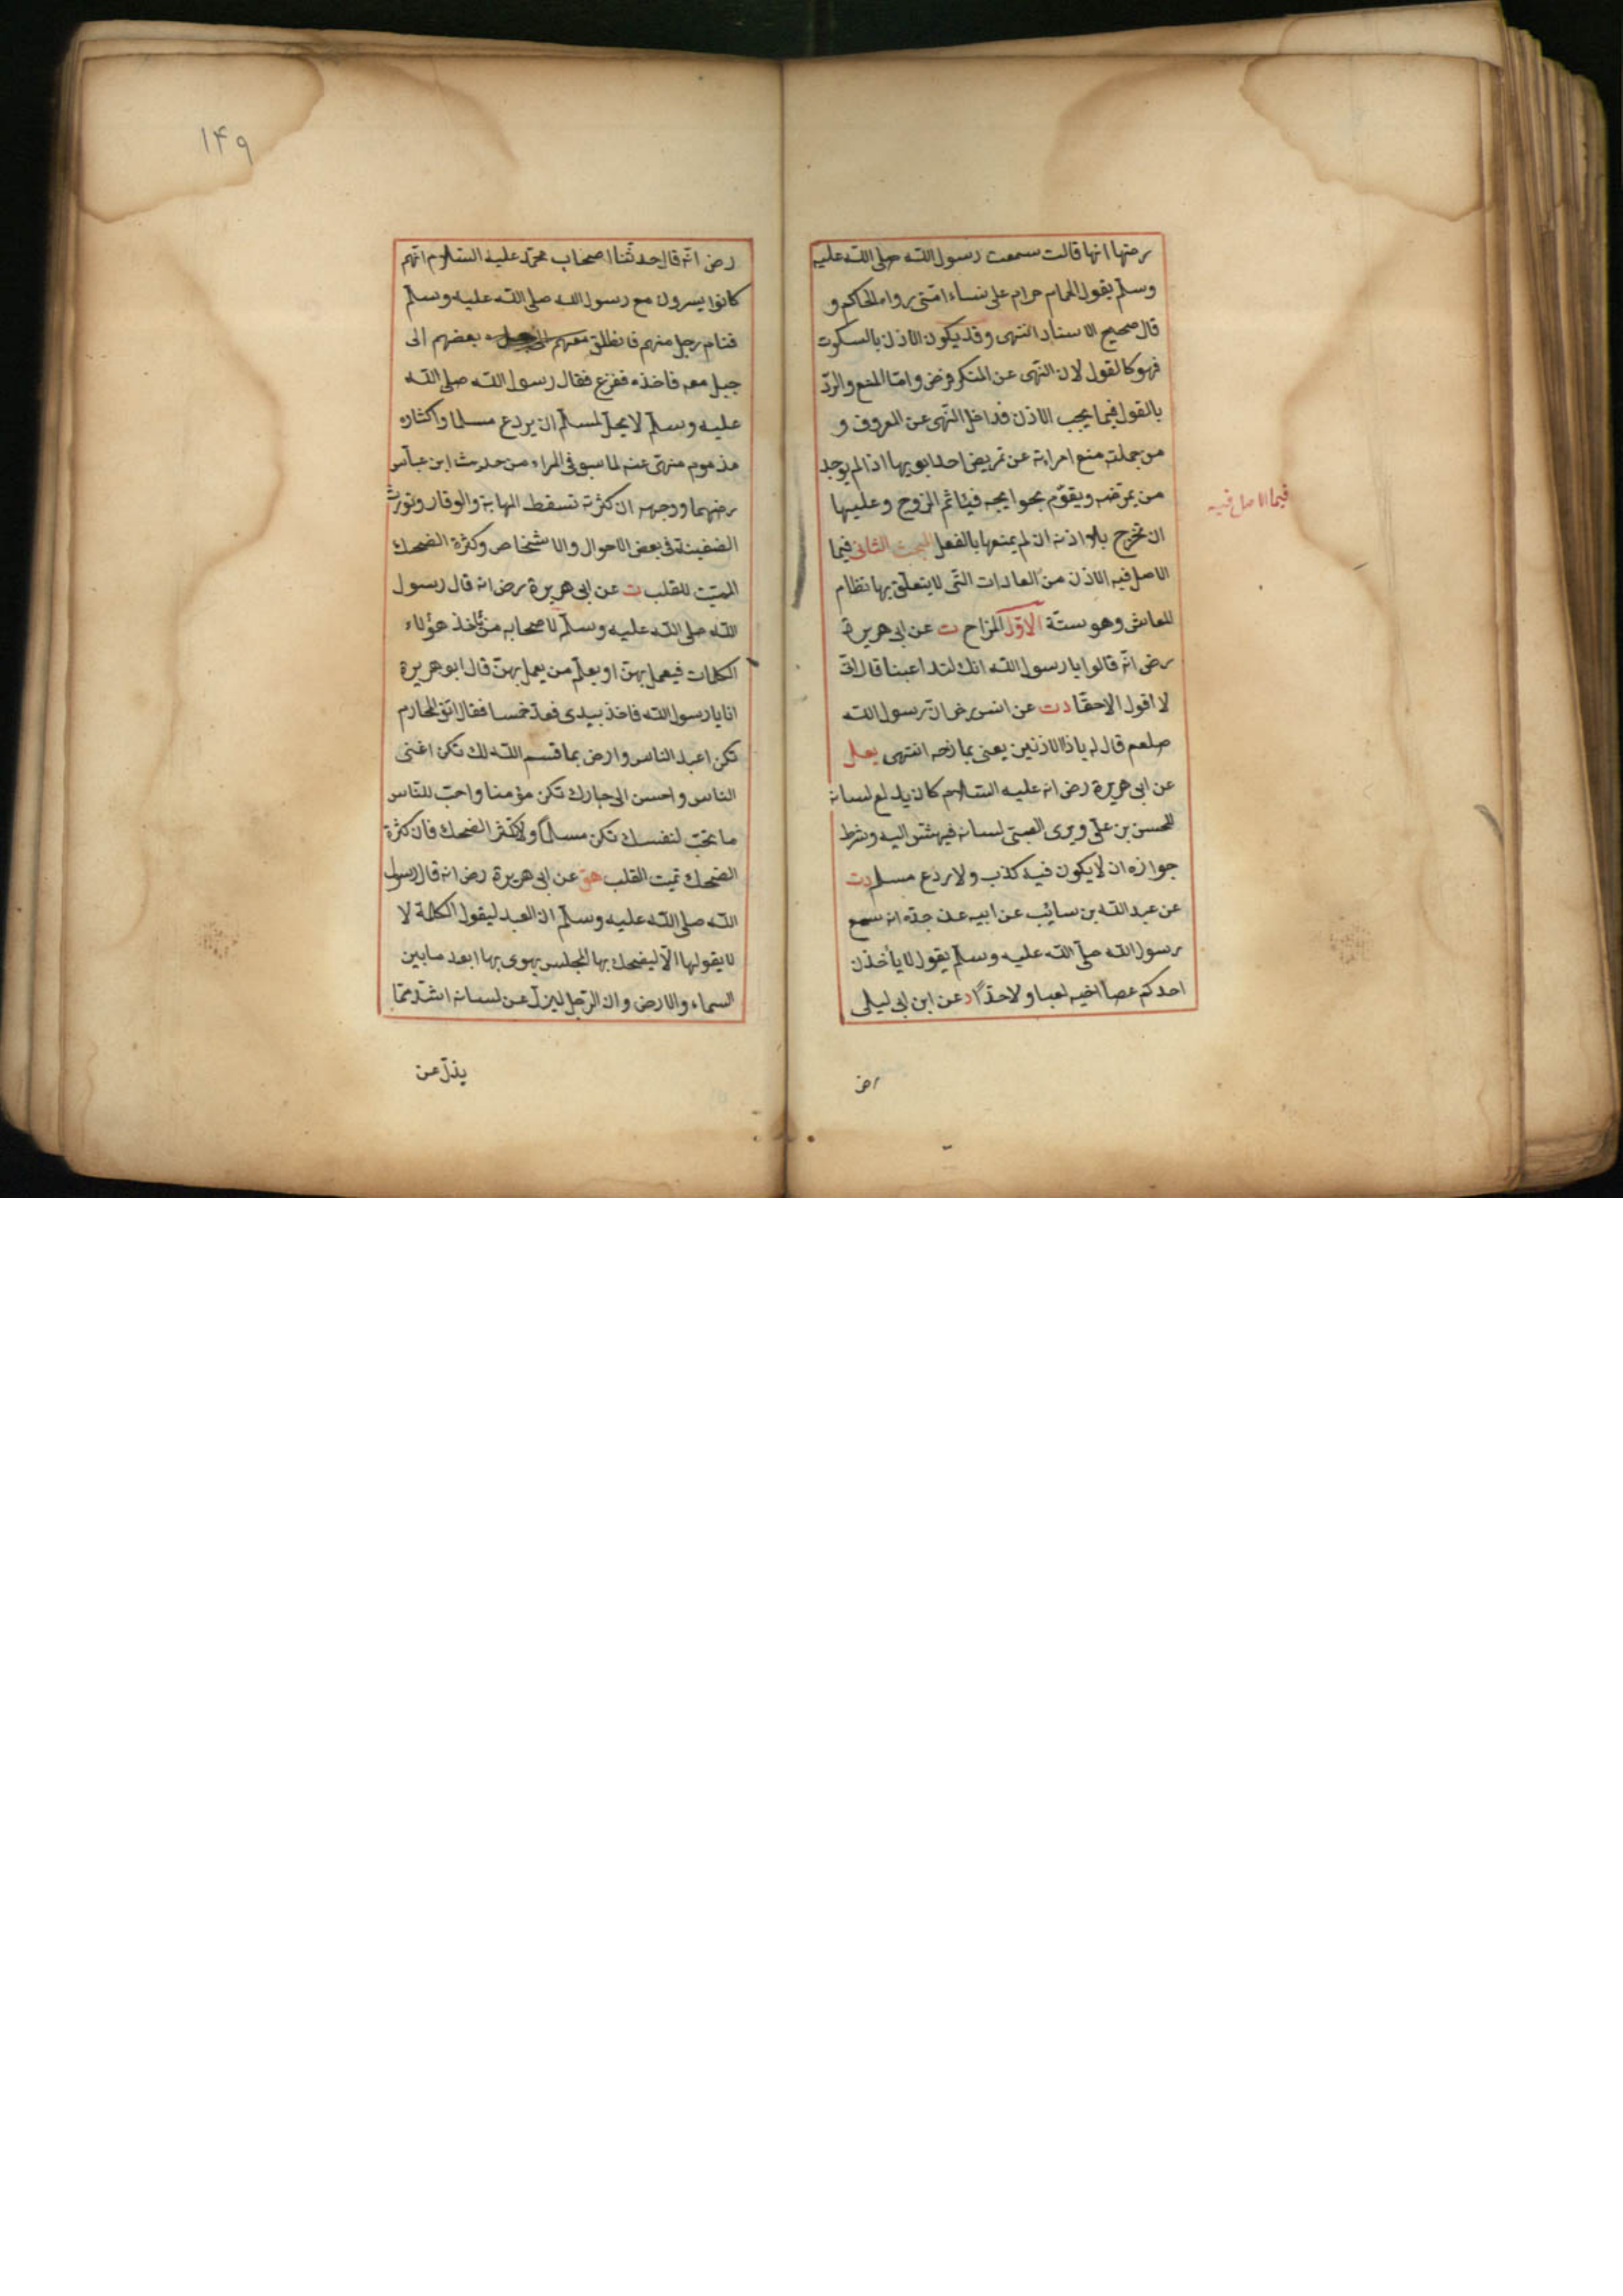 رضها انها قالت سمعت رسول الله صلى الله عليه
وسلم يقول الحمام حرام على نساء امتى رواه الحاكم و
قال صحيح الاسناد انتهى وقد يكون الاذن بالسكوت
فهو كالقول لان النهى عن المنكر فرض واما المنع والرد
بالقول فيما يجب الاذن فداخل النهى عن المعروف و
من جملته منع امراءته عن تمريض احد ابويها اذا لم يوجد
من يمرضه ويقوم بحوايجه فياثم الزوج وعليها
ان تخرج بلا اذنه ان لم يمنعها بالفعل المبحث الثانى فيما
فيما الاصل فيه
الاصل فيه الاذن من العادات التى لا يتعلق بها نظام
المعاش وهو ستة الاول المزاح ت عن ابى هريرة
رض انه قالوا يا رسول الله انك لتداعبنا قال انى
لا اقول الا حقا دت عن انس رض ان رسول الله
صلعم قال له ياذا الاذنين يعنى يمازحه انتهى يعلى
عن ابى هريرة رض انه عليه السلام كان يدلع لسانه
للحسن بن على ويرى الصبى لسانه فيهش اليه وشرط
جوازه ان لا يكون فيه كذب ولا روع مسلم دت
عن عبد الله بن سائب عن ابيه عن جده انه سمع
رسول الله صلى الله عليه وسلم يقول لا يأخذن
احدكم عصا اخيه لعبا ولا جدًا د عن ابن ابى ليلى
رض
رض انه قال حدثنا اصحاب محمد عليه السلام انهم
كانوا يسرون مع رسول الله صلى الله عليه وسلم
فنام رجل منهم فانطلق معهم بعضهم الى
جبل معه فاخذه ففزع فقال رسول الله صلى الله
عليه وسلم لا يحل لمسلم ان يروع مسلما واكثاره
مذموم منهى عنه لما سبق فى المراء من حديث ابن عباس
رضهما ووجهه ان كثرته تسقط المهابة والوقار وتورث
الضغينة فى بعض الاحوال والاشخاص وكثرة الضحك
المميت للقلب ت عن ابى هريرة رض انه قال رسول
الله صلى الله عليه وسلم لاصحابه من يأخذ هؤلاء
الكلمات فيعمل بهن او يعلم من يعمل بهن قال ابو هريرة
انا يا رسول الله فاخذ بيدى فعد خمسا فقال اتق المحارم
تكن اعبد الناس وارض بما قسم الله لك تكن اغنى
الناس واحسن الى جارك تكن مؤمنا واحب للناس
ما تحب لنفسك تكن مسلمًا ولا تكثر الضحك فان كثرة
الضحك تميت القلب هق عن ابى هريرة رض انه قال رسول
الله صلى الله عليه وسلم ان العبد ليقول الكلمة لا
لا يقولها الا ليضحك بها المجلس يهوى بها ابعد ما بين
السماء والارض وان الرجل ليزل عن لسانه اشد مما
يزل عن
۱۴۹